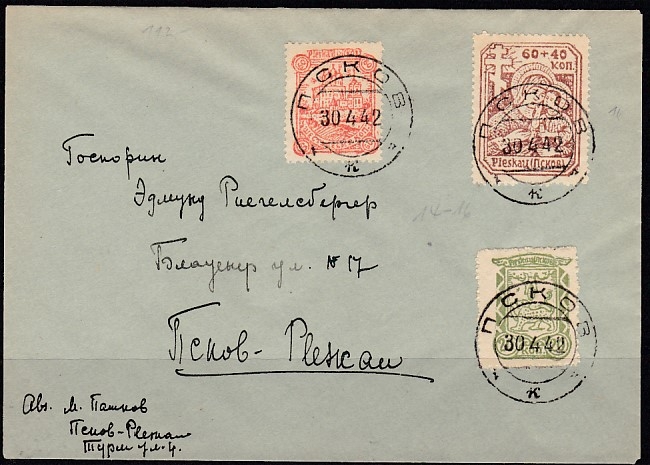 112-
ПСКОВ
30.4.42
к
60+40
КОП.
ПСКОВ
30.4.42
Pleskau (Псков)
к
Госпорин
Эдмунд Ригельсбергер
14-16
Блауенр ул. № 17
ПСКОВ
30.4.42
к
Псков- Pleskau
Abs. М. Пашков
Псков-Pleskau
Турм ул. 4.